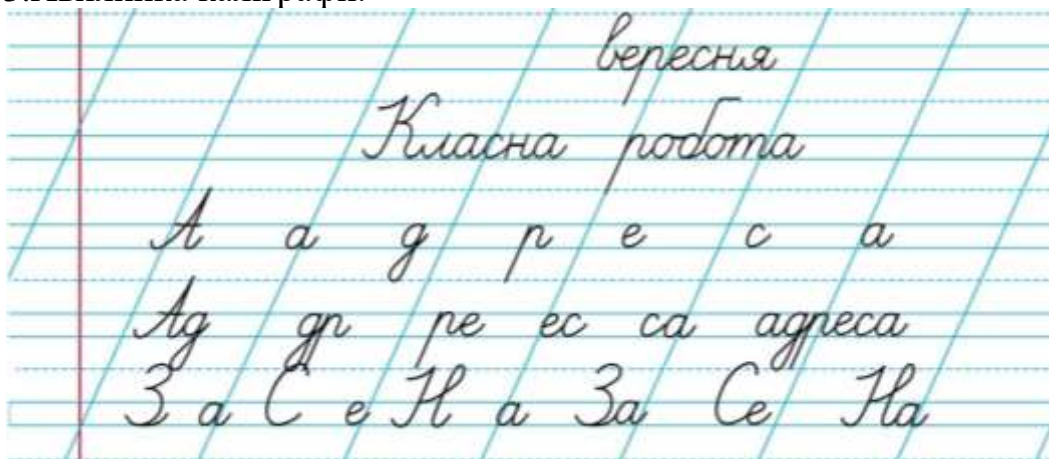 вересня
Класна робота
А а д р е с а
Ад др ре ес са адреса
З а С е Н а За Се На